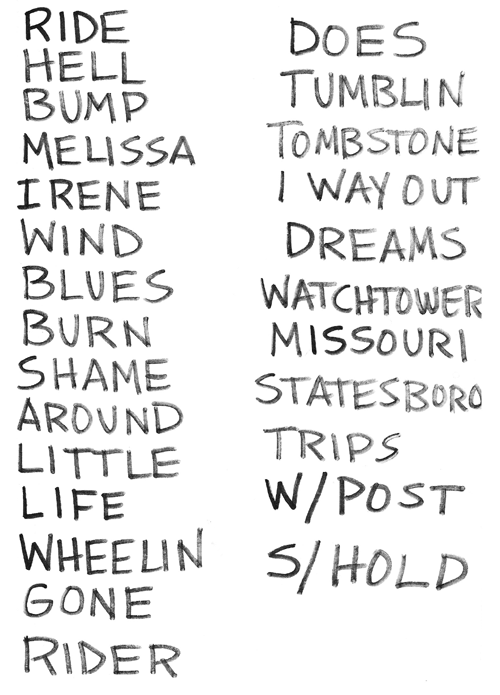 RIDE
HELL
BUMP
MELISSA
IRENE
WIND
BLUES
BURN
SHAME
AROUND
LITTLE
LIFE
WHEELIN
GONE
RIDER
DOES
TUMBLIN
TOMBSTONE
1 WAY OUT
DREAMS
WATCHTOWER
MISSOURI
STATESBORO
TRIPS
W/POST
S/HOLD